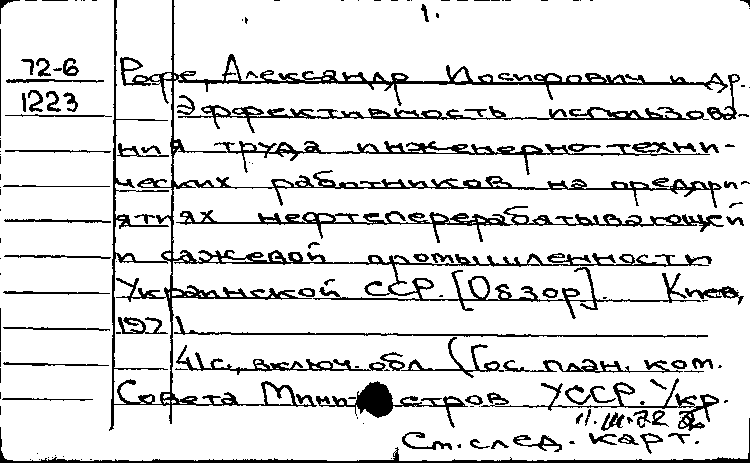 1.
72-6 Рофе, Александр Иосифович и др.
1223 Эффективность использова-
ния труда инженерно-техни-
ческих работников на предпри-
ятиях нефтеперерабатывающей
и сажевой промышленности
Украинской ССР. [Обзор]. Киев,
1971.
41 с., включ. обл. (Гос. план. ком.
Совета Министров УССР. Укр.
11.III.72
См. след. карт.